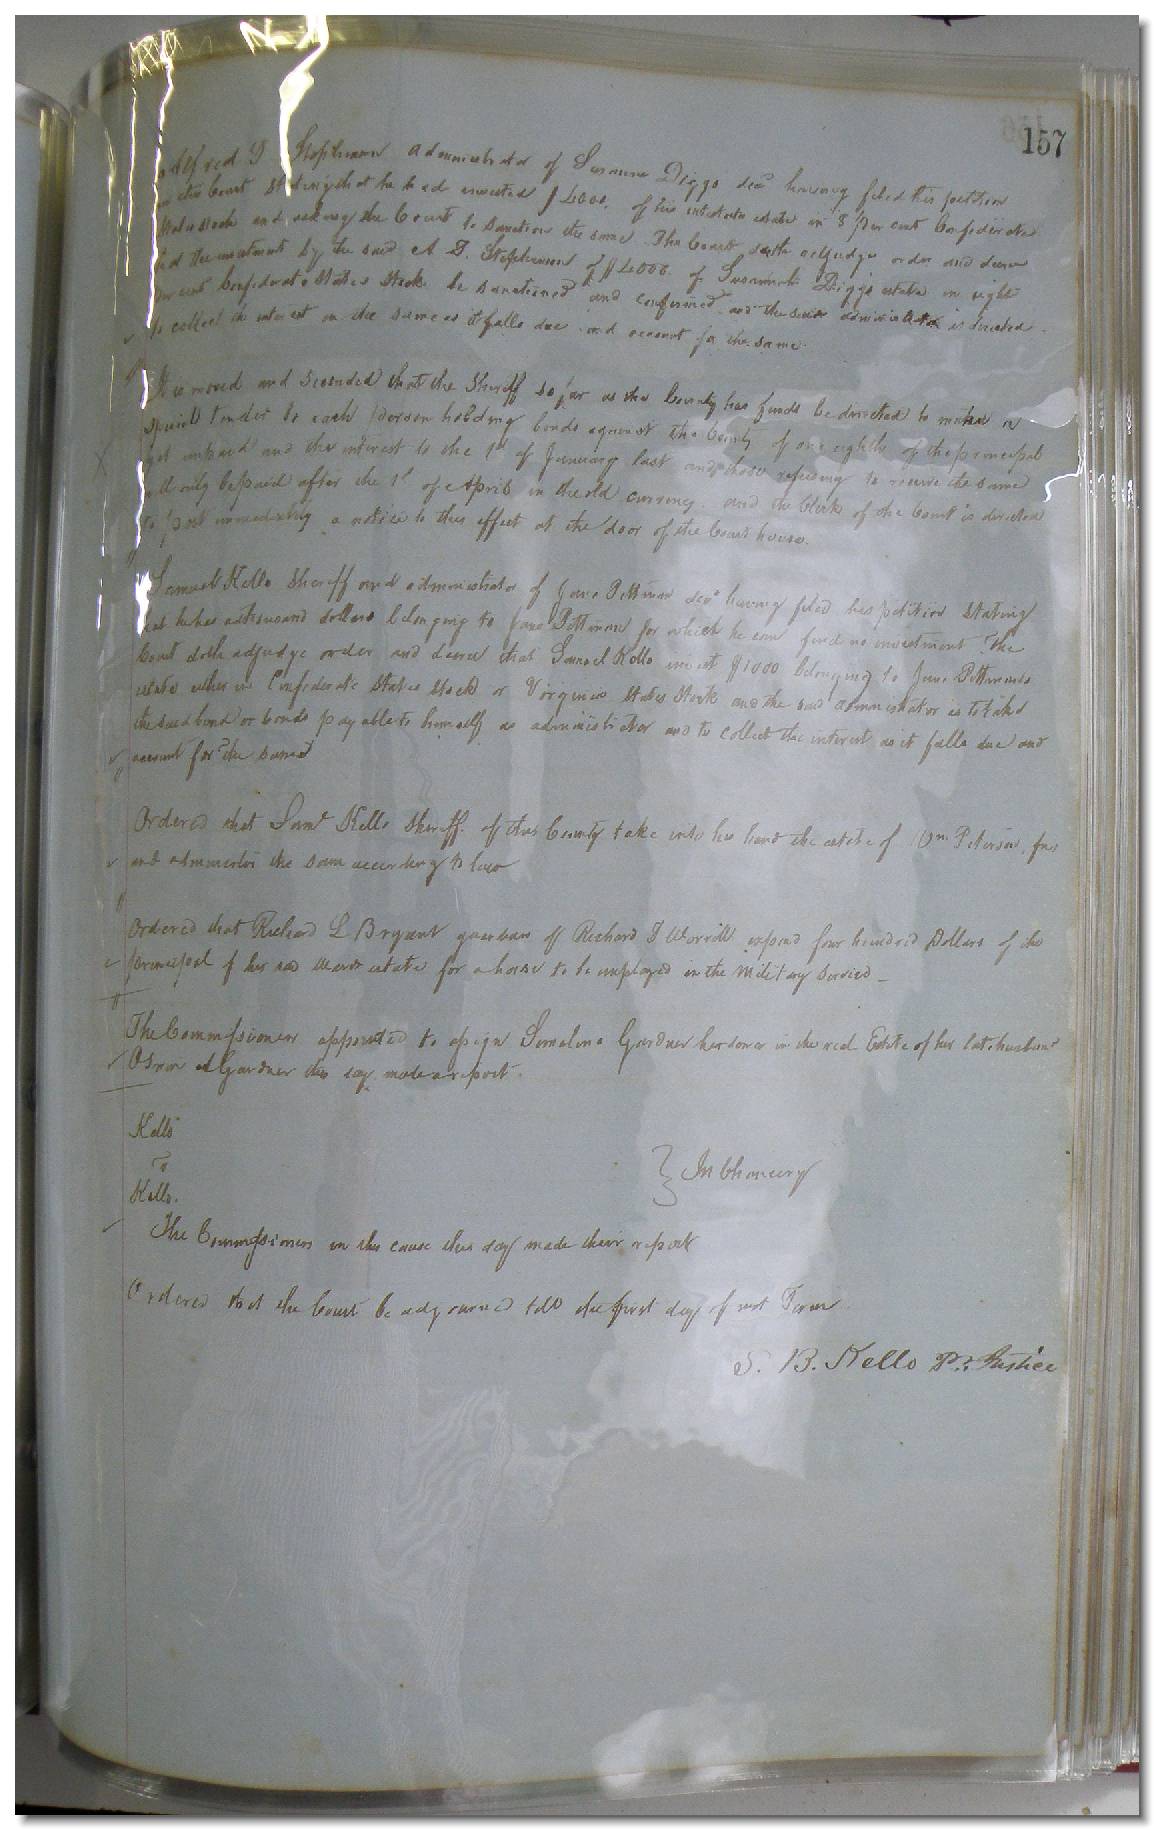 157
Alfred D Stephenson Administrator of Susanna Diggs decd having filed this petition
in this Court stating that he had invested $4000. of his intestates estate in 8 per cent Confederate
States stock and asking the Court to sanction the same. The Court doth adjudge order and decree
that the investment by the said A D. Stephenson of $4000. of Susannah Diggs estate in eight
per cent Confederate States Stock be sanctioned and confirmed and the said administrator is directed
to collect the interest on the same as it falls due and account for the same.
It is moved and seconded that the Sheriff so far as the County has funds be directed to make a
special tender to each person holding bonds against the County of one eighth of the principal
yet unpaid and the interest to the 1st of January last and those refusing to receive the same
will only be paid after the 1st of April in the old currency. and the Clerk of the Court is directed
to post immediately a notice to this effect at the door of the Court house.
Samuel Kello Sheriff and administrator of Jane Pittman decd having filed his petition stating
that he has a thousand dollars belonging to Jane Pittman for which he can find no investment The
Court doth adjudge order and decree that Samuel Kello invest $1000 belonging to Jane Pittmans
estate either in Confederate States Stock or Virginia States Stock and the said administrator is to take
the said bond or bonds payable to himself as administrator and to collect the interest as it falls due and
account for the same
Ordered that Saml Kello Sheriff of this County take into his hand the estate of Wm Peterson,
and administer the same according to law
Ordered that Richard L Bryant guardian of Richard T Worrill expend four hundred Dollars of the
principal of his said wards estate for a horse to be employed in the Military Service _
The Commissioners appointed to assign Gardner her dower in the real Estate of her late husband
A Gardner this day made a report.
Kello
vs
Kello.
} In Chancery
The Commissioners in this cause this day made their report
Ordered that the Court be adjourned till the first day of next Term
S. B. Kello Pr. Justice